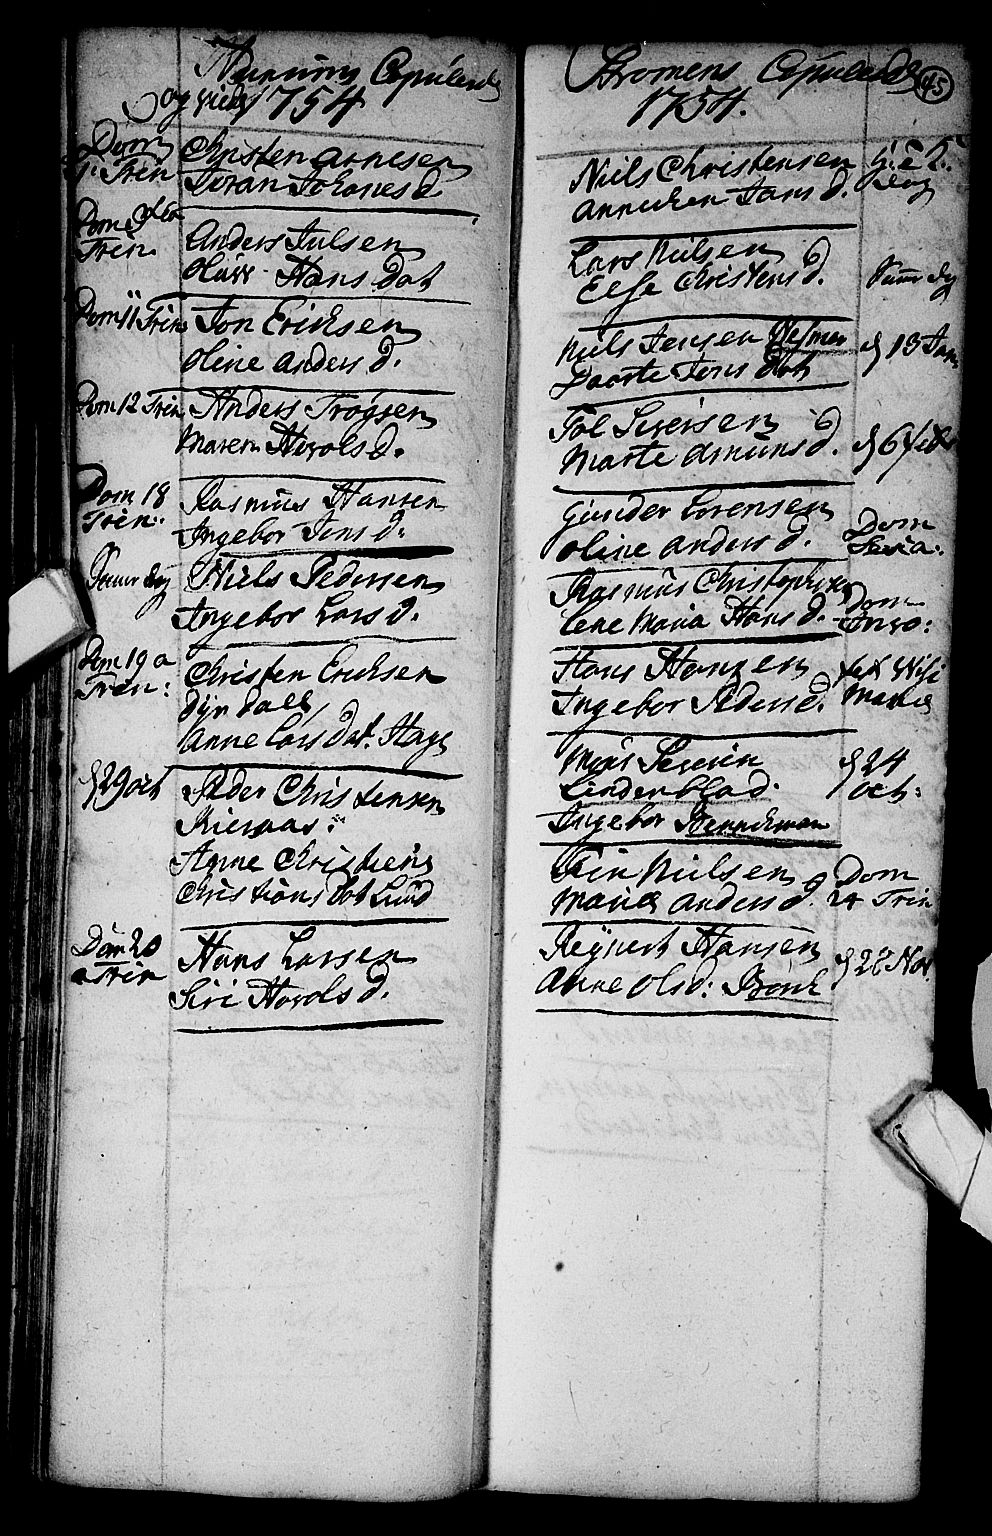 Copulerede
og viede 1754
Dom
7. Trin
Christen Arnesen
Joran Johanes d.
Dom 9
Trin
Anders Julsen
Oliv Hans dat
Dom 11 Trin
Jon Erichsen
Oline Anders d.
Dom 12 Trin
Anders Trogsen
Maren Harols d.
Dom 18
Trin:
Rasmus Hansen
Ingebor Jens d:
dag
Niels Pedersen
Ingebor Lars d.
Dom 19 a
Trin:
Christen Erichsen
Dyndall
Anne Lars dat. Hage
d 29 oct
Peder Christensen
Anne Christiene
Christians dat Lund
Dom 20
a Trin
Hans Larsen
Siri Harols d.
Bromens Copulerede
45
1754.
Niels Christensen
Annichen Jans d.
dag
Lars Nielsen
Else Christens d.
dag
Niels Jensen
Daarte Jens dat
d 13 Jan
Tol Sversen
Marte Amuns d.
d 6 feb
Gunder Lorensen
Oline Anders d.
Dom
Rasmus Christophersen
Lene Maria Hans d.
Dom
Invo:
Hans Hansen
Ingebor Peders d.
fest Visi
Mariæ
Severin
Linderblad.
Ingebor
d 24
oct:
Fin Nielsen
Maria Anders d.
Dom
24 Trin
Reynert Hansen
Anne Ols d:
d 28 Nov